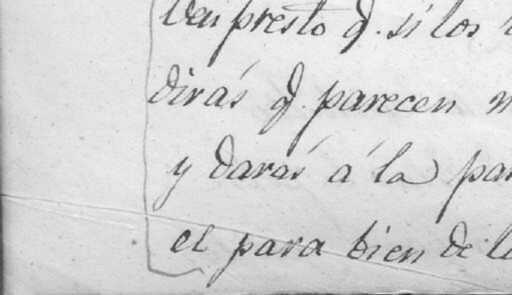 Ven presto q. si los
dirás q. parecen
y daras á la
el para bien de